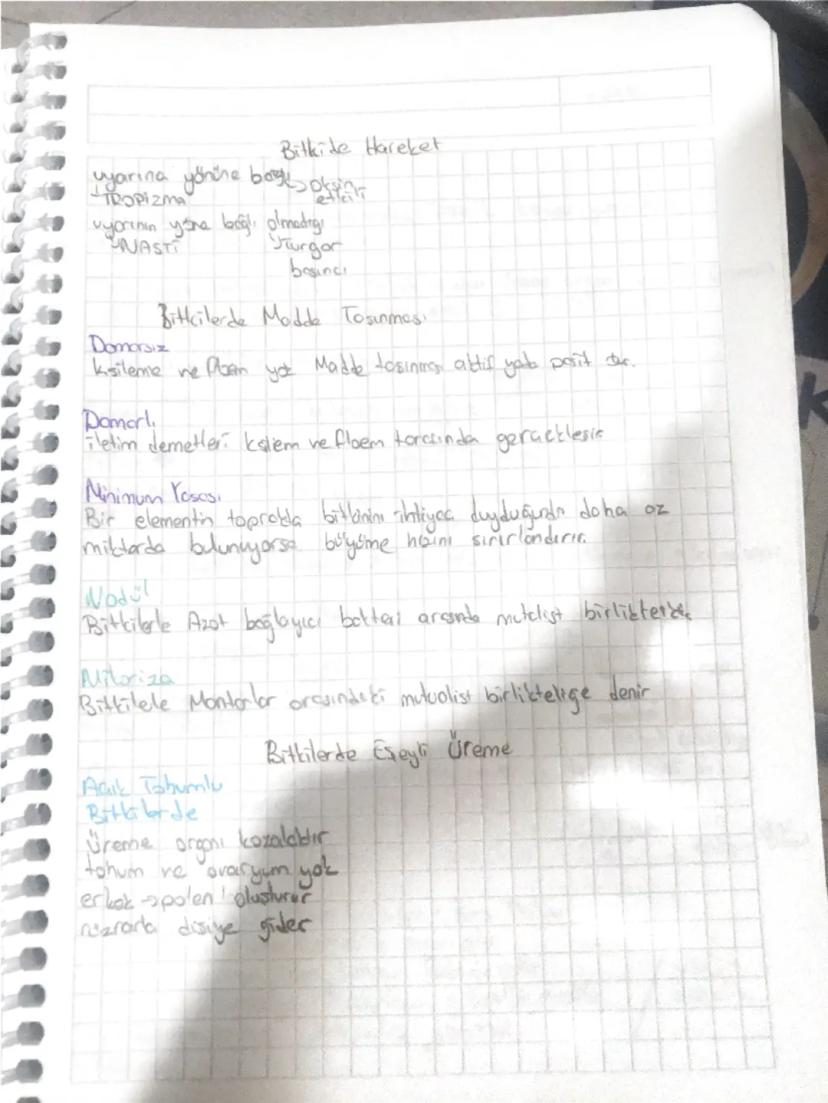 Bitkide Hareket
uyarına yönüne bağlı → oksin
TROPİZMA etkili
uyarının yöne bağlı olmadığı
NASTİ Turgor
basıncı
Bitkilerde Madde Taşınması
Damarsız
ksileme ve floem yok Madde taşınması aktif yada pasif
Damarlı
iletim demetleri ksilem ve floem tarasında gerçekleşir
Minimum Yasası
Bir elementin toprakta bitkinin ihtiyaç duyduğundn daha az
miktarda bulunuyorsa büyüme hızını sınırlandırır.
Nodül
Bitkilerle Azot bağlayıcı bakteri arasında mutalist
Mikoriza
Bitkilele Mantarlar arasındaki mutualist birlikteliğe denir
Bitkilerde Eşeyli Üreme
Açık Tohumlu
Bitkilerde
Üreme organı kozalaktır
tohum ve ovaryum yok
erkek → polen oluşturur
rüzgarla dişiye gider